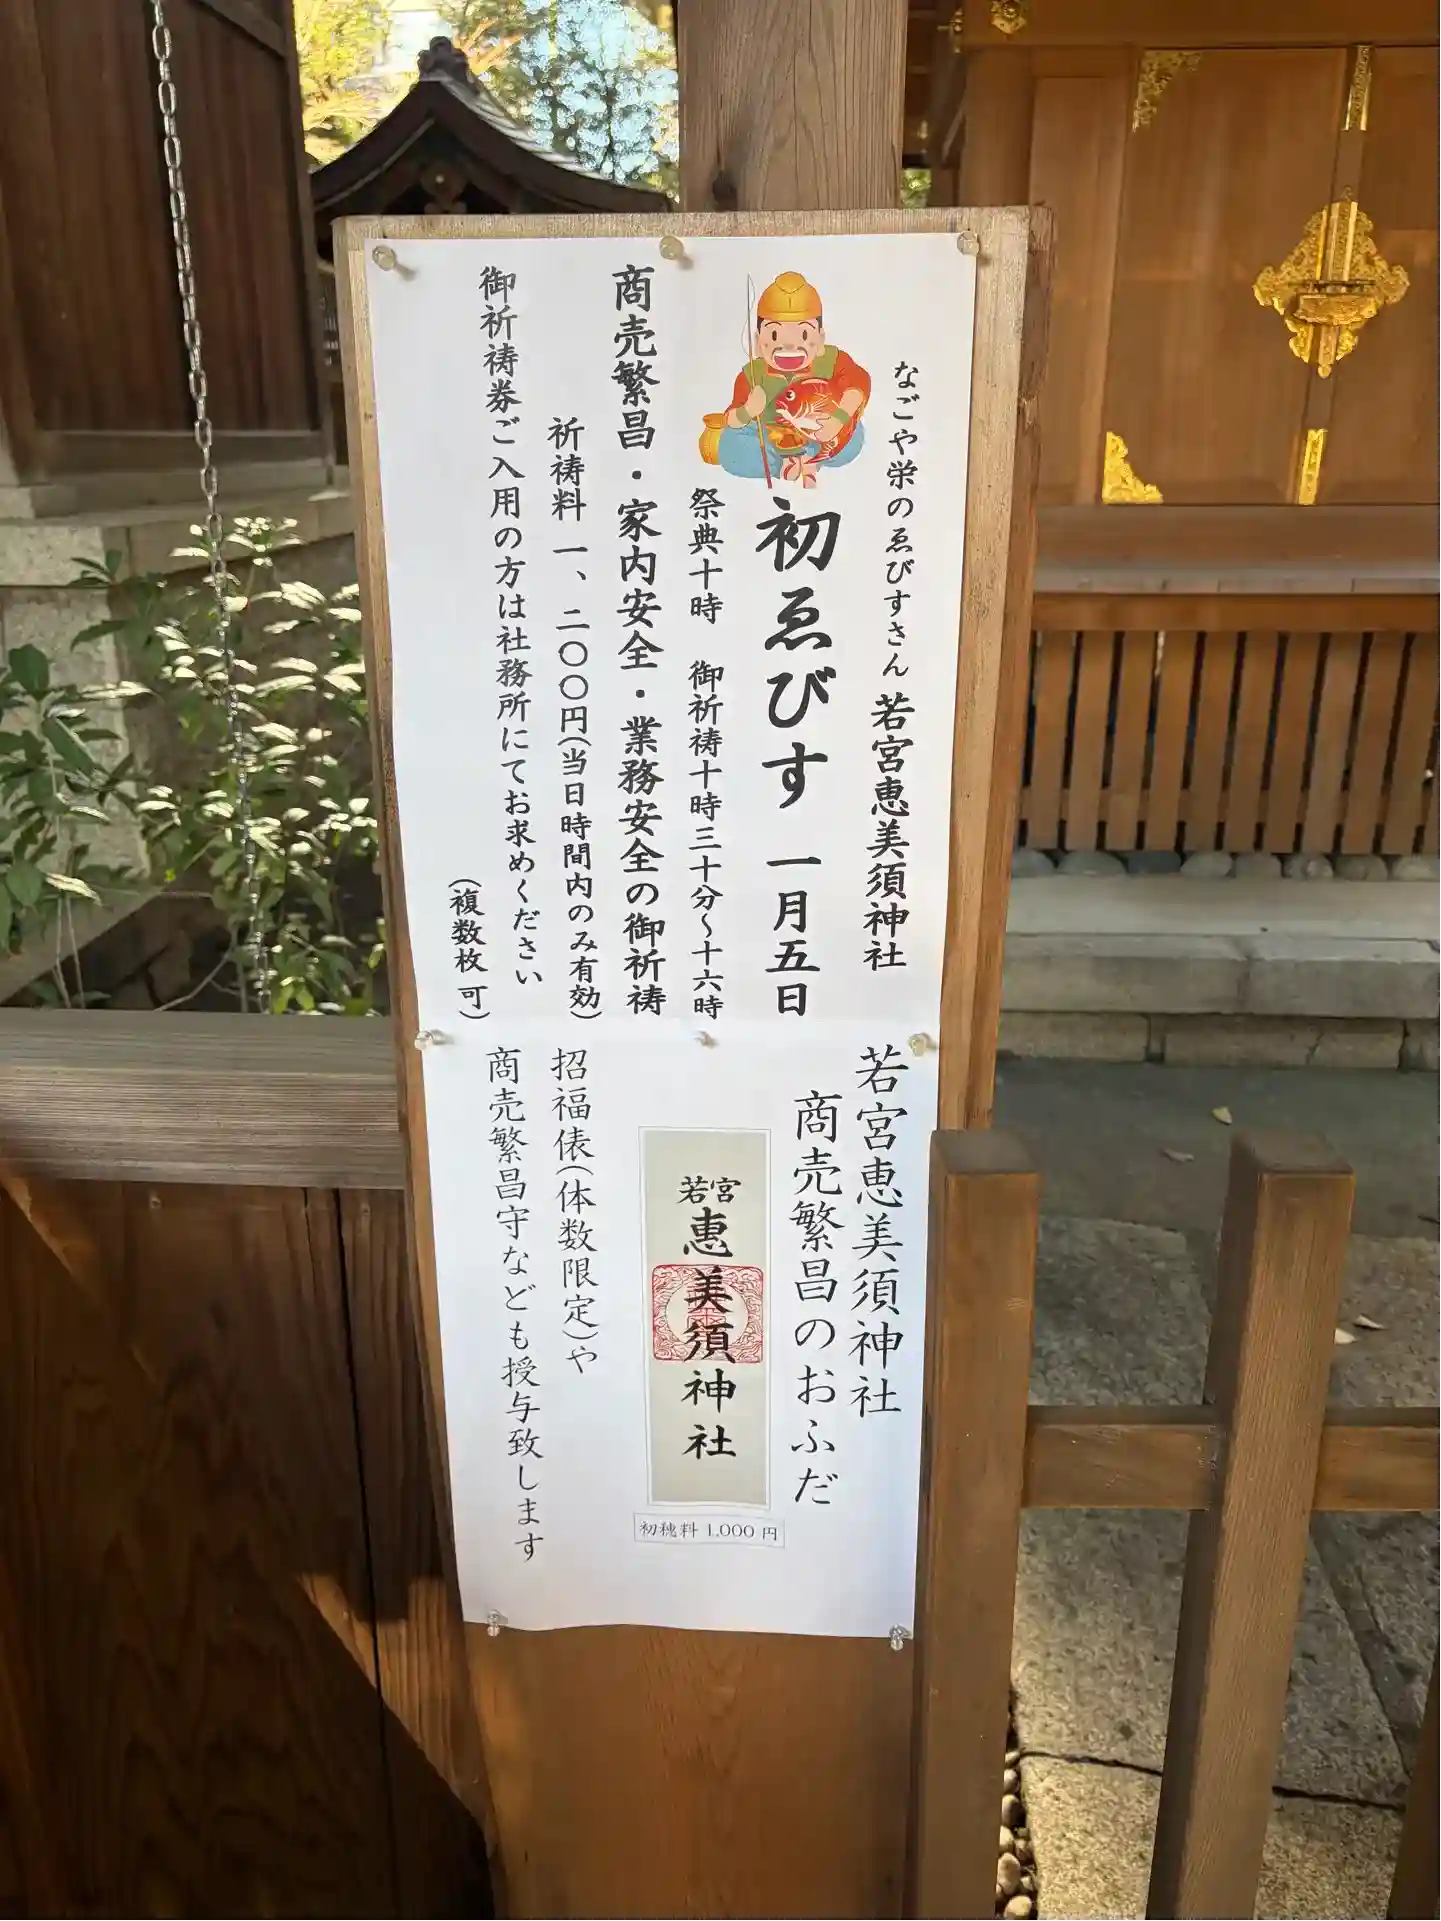 なごや栄のゑびすさん 若宮恵美須神社
初ゑびす 一月五日
祭典十時 御祈祷十時三十分～十六時
商売繁昌・家内安全・業務安全の御祈祷
祈祷料 一、二〇〇円(当日時間内のみ有効)
御祈祷券ご入用の方は社務所にてお求めください
(複数枚 可)
若宮恵美須神社
商売繁昌のおふだ
若宮
惠美須神社
初穂料 1,000 円
招福俵(体数限定)や
商売繁昌守なども授与致します